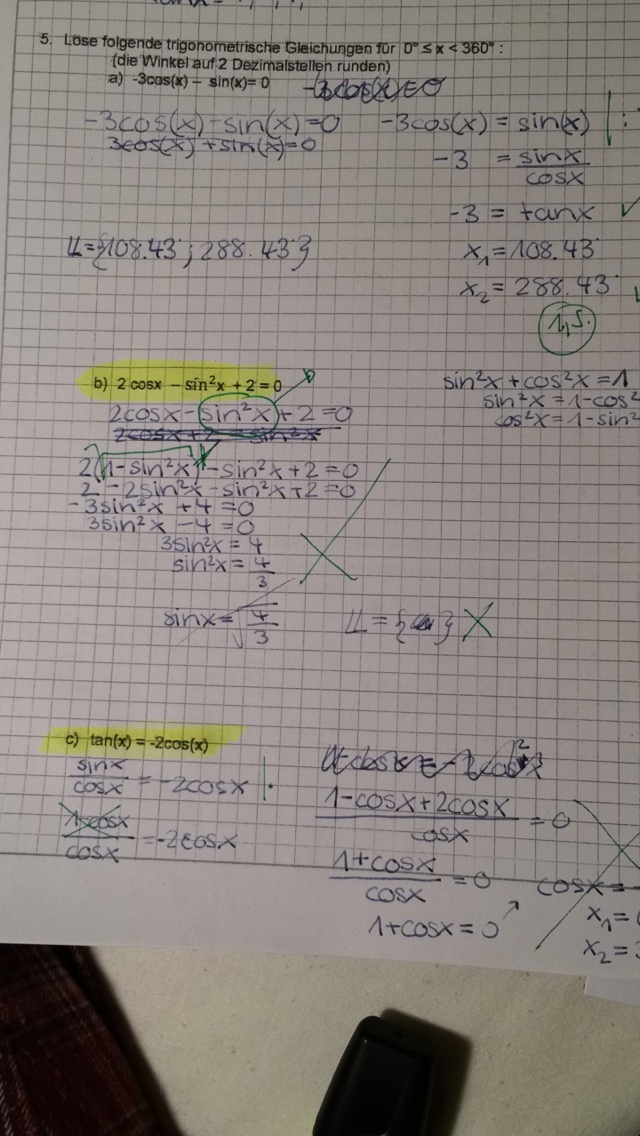 5. Löse folgende trigonometrische Gleichungen für 0° ≤ x < 360° :
(die Winkel auf 2 Dezimalstellen runden)
a) -3cos(x) – sin(x)= 0
-3cos(x)=0
-3cos(x)-sin(x)=0
3cos(x)+sin(x)=0
-3cos(x) = sin(x) | :
-3 = sinx/cosx
-3 = tanx ✓
x₁=108.43°
x₂= 288.43°
1,5.
𝕃={108.43°; 288.43°}
b) 2 cosx – sin²x + 2 = 0
sin²x + cos²x = 1
sin²x = 1-cos²
cos²x = 1-sin²
2cosx - sin²x + 2 = 0
2cosx + 2 = sin²x
2(1-sin²x) - sin²x + 2 = 0
2 - 2sin²x - sin²x + 2 = 0
-3sin²x + 4 = 0
3sin²x - 4 = 0
3sin²x = 4
sin²x = 4/3
sinx = √4/3
𝕃 = { }
c) tan(x) = -2cos(x)
sinx/cosx = -2cosx |·
1-cosx/cosx = -2cosx
1-cosx+2cosx/cosx = 0
1+cosx/cosx = 0
1+cosx = 0
cosx = -
x₁=
x₂=